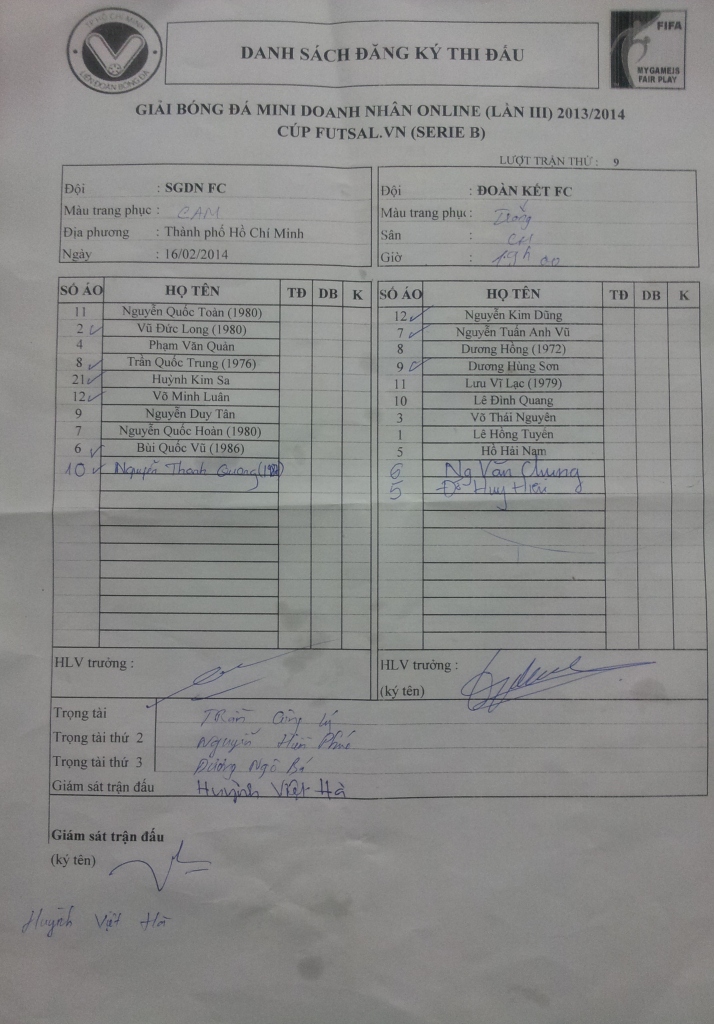 TP HỒ CHÍ MINH
LIÊN ĐOÀN BÓNG ĐÁ
DANH SÁCH ĐĂNG KÝ THI ĐẤU
FIFA
MY GAME IS
FAIR PLAY
GIẢI BÓNG ĐÁ MINI DOANH NHÂN ONLINE (LẦN III) 2013/2014
CÚP FUTSAL.VN (SERIE B)
LƯỢT TRẬN THỨ : 9
Đội : SGDN FC
Màu trang phục : CAM
Địa phương : Thành phố Hồ Chí Minh
Ngày : 16/02/2014
Đội : ĐOÀN KẾT FC
Màu trang phục : Trắng
Sân : CH
Giờ : 19h 00
SỐ ÁO HỌ TÊN TĐ DB K
11 Nguyễn Quốc Toàn (1980)
2 Vũ Đức Long (1980)
4 Phạm Văn Quản
8 Trần Quốc Trung (1976)
21 Huỳnh Kim Sa
12 Võ Minh Luân
9 Nguyễn Duy Tân
7 Nguyễn Quốc Hoàn (1980)
6 Bùi Quốc Vũ (1986)
10 Nguyễn Thanh Quang
SỐ ÁO HỌ TÊN TĐ DB K
12 Nguyễn Kim Dũng
7 Nguyễn Tuấn Anh Vũ
8 Dương Hồng (1972)
9 Dương Hùng Sơn
11 Lưu Vĩ Lạc (1979)
10 Lê Đình Quang
3 Võ Thái Nguyên
1 Lê Hồng Tuyển
5 Hồ Hải Nam
6 Ng Văn Chung
5 Đỗ Huy Hiếu
HLV trưởng :
HLV trưởng :
(ký tên)
Trọng tài Trần Công Lý
Trọng tài thứ 2 Nguyễn Hữu Phúc
Trọng tài thứ 3 Dương Ngô Bá
Giám sát trận đấu Huỳnh Việt Hà
Giám sát trận đấu
(ký tên)
Huỳnh Việt Hà